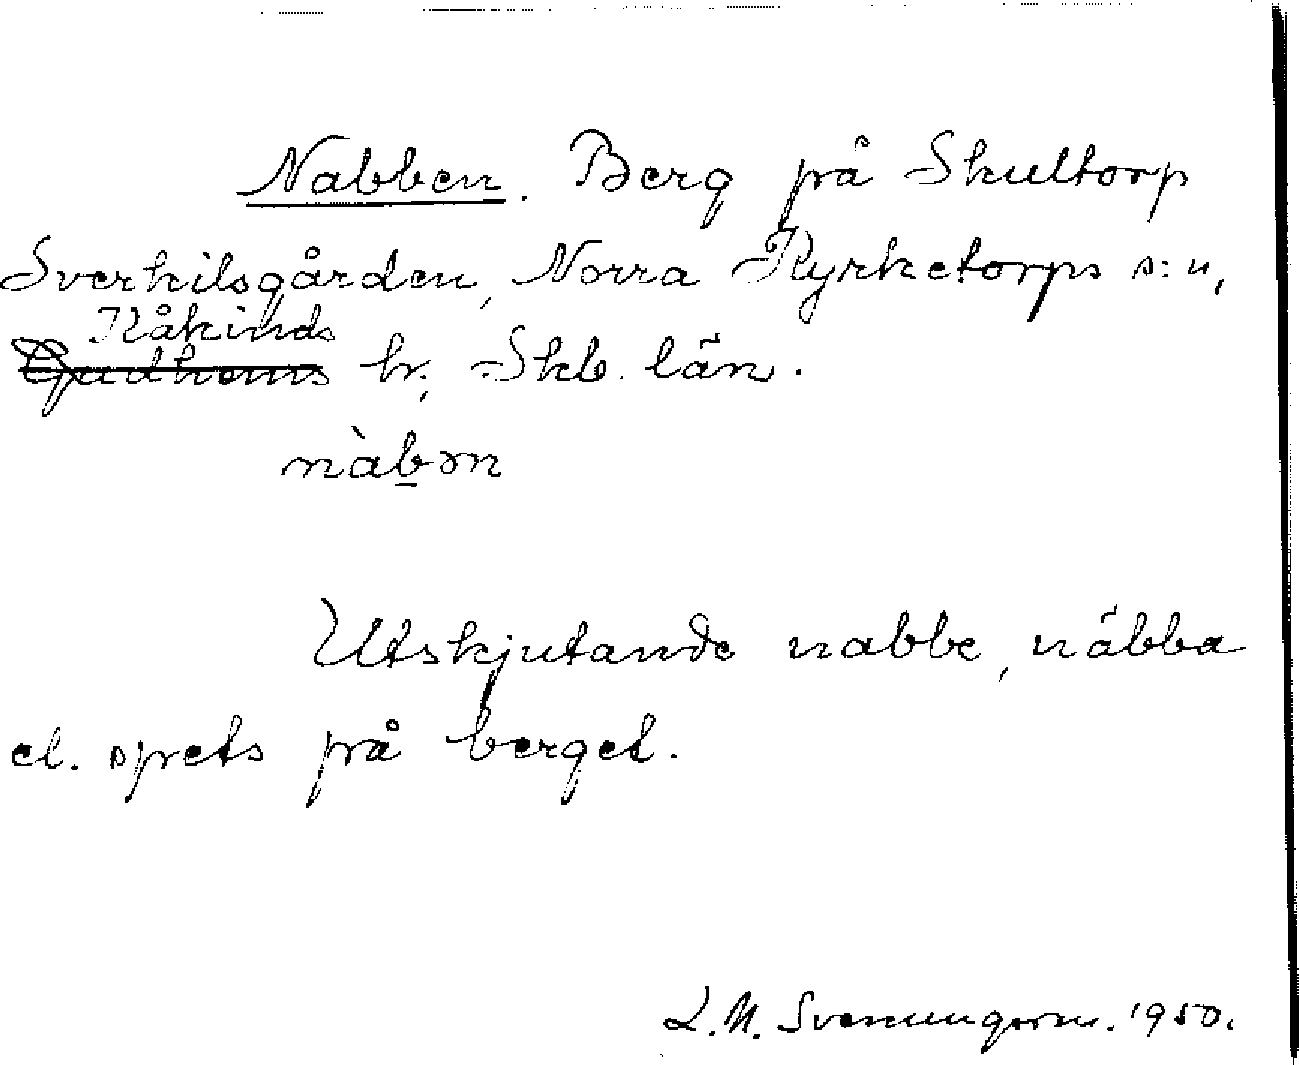 Nabben. Berg på Skultorp
Sverkilsgården, Norra Kyrketorps s:n,
Kåkinds
Gudhems hr, Skb. län.
nàbən
Utskjutande nabbe, näbba
el. spets på berget.
L.M. Svenungsson. 1950.